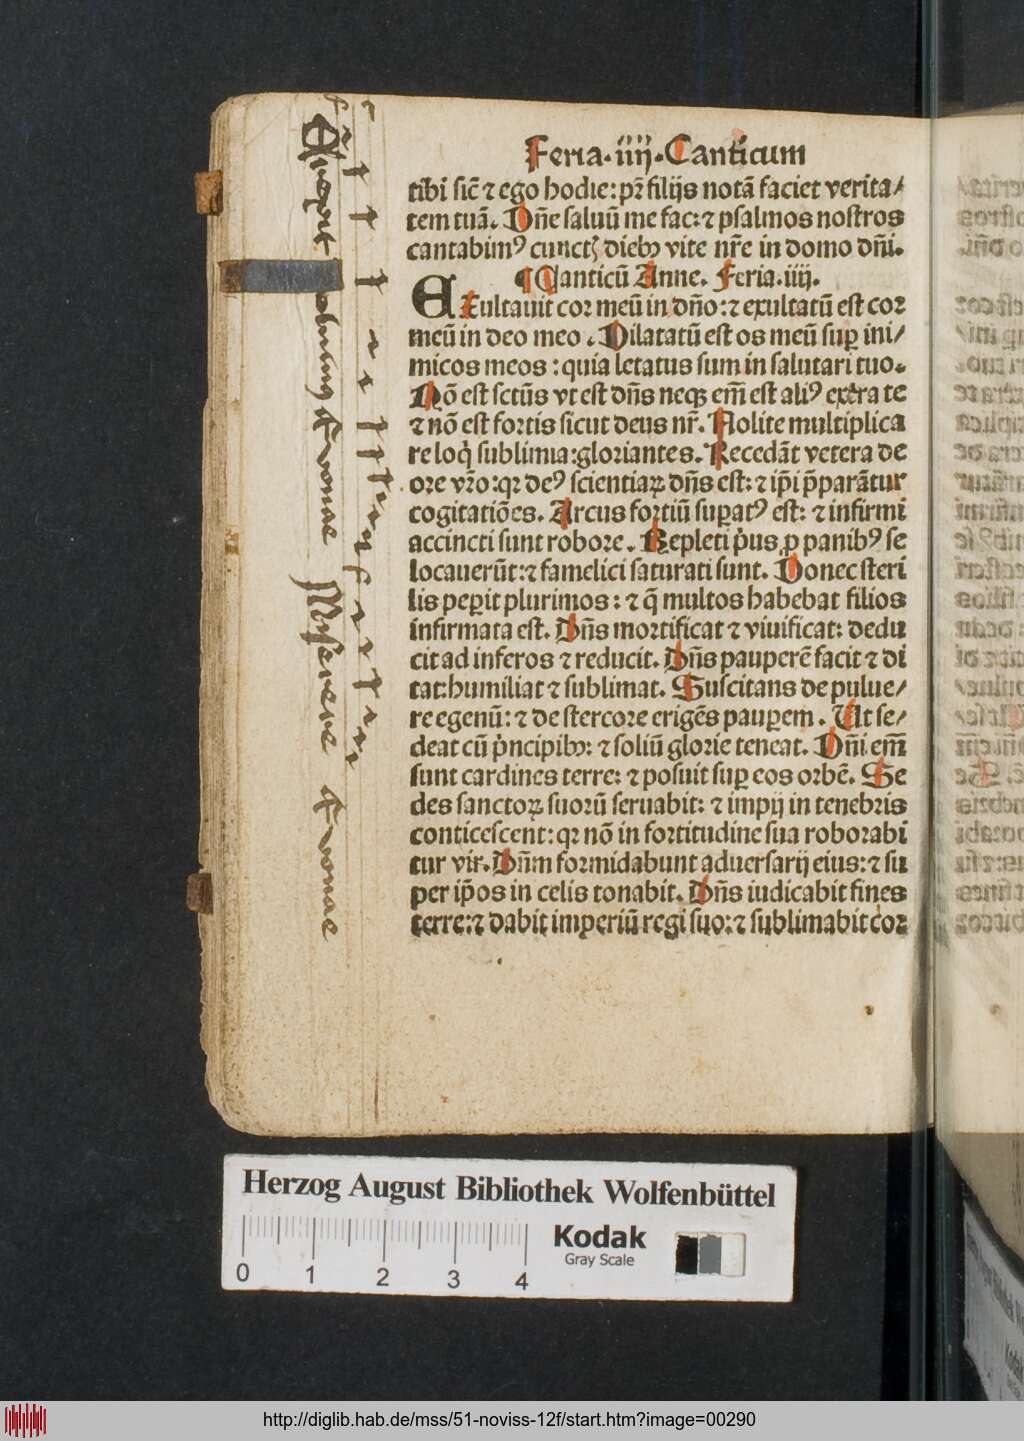 Feria·iiij·Canticum
tibi sic̄ ⁊ ego hodie: pr̄ filijs notā faciet verita/
tem tuā. Dn̄e saluū me fac: ⁊ psalmos nostros
cantabimꝰ cunctꝭ diebꝫ vite nr̄e in domo dn̄i.
¶ Canticū Anne. Feria.iiij.
EXultauit cor meū in dn̄o: ⁊ exultatū est cor
meū in deo meo. Dilatatū est os meū suꝑ ini/
micos meos: quia letatus sum in salutari tuo.
Nō est sctūs vt est dn̄s neqꝫ em̄ est aliꝰ extra te
⁊ nō est fortis sicut deus nr̄. Nolite multiplica
re loq̇ sublimia: gloriantes. Recedāt vetera de
ore vr̄o: qꝛ deꝰ scientiaꝝ dn̄s est: ⁊ ip̄i p̄parātur
cogitatiōes. Arcus fortiū suꝑatꝰ est: ⁊ infirmi
accincti sunt robore. Repleti ṗus ꝓ panibꝰ se
locauerūt: ⁊ famelici saturati sunt. Donec steri
lis peꝑit plurimos: ⁊ q̄ multos habebat filios
infirmata est. Dn̄s mortificat ⁊ viuificat: dedu
cit ad inferos ⁊ reducit. Dn̄s pauperē facit ⁊ di
tat: humiliat ⁊ sublimat. Suscitans de pulue/
re egenū: ⁊ de stercore erigēs pauꝑem. Ut se/
deat cū ṗncipibꝫ: ⁊ soliū glorie teneat. Dn̄i em̄
sunt cardines terre: ⁊ posuit suꝑ eos orbē. Se
des sanctoꝝ suorū seruabit: ⁊ impij in tenebris
conticescent: qꝛ nō in fortitudine sua roborabi
tur vir. Dn̄m formidabunt aduersarij eius: ⁊ su
per ip̄os in celis tonabit. Dn̄s iudicabit fines
terre: ⁊ dabit imꝑeriū regi suo: ⁊ sublimabit cor
Euouae Miserere Euouae
Herzog August Bibliothek Wolfenbüttel
Kodak
Gray Scale
0 1 2 3 4
http://diglib.hab.de/mss/51-noviss-12f/start.htm?image=00290